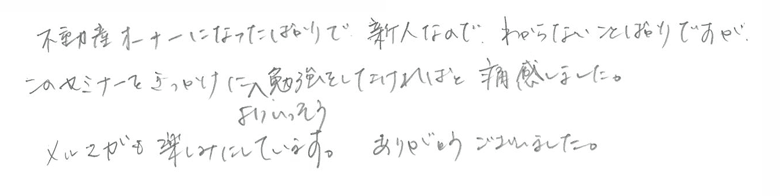 不動産オーナーになったばかりで、新人なので、わからないことばかりですが、
このセミナーをきっかけに勉強をしなければと痛感しました。
よりいっそう
メルマガも楽しみにしています。 ありがとうございました。